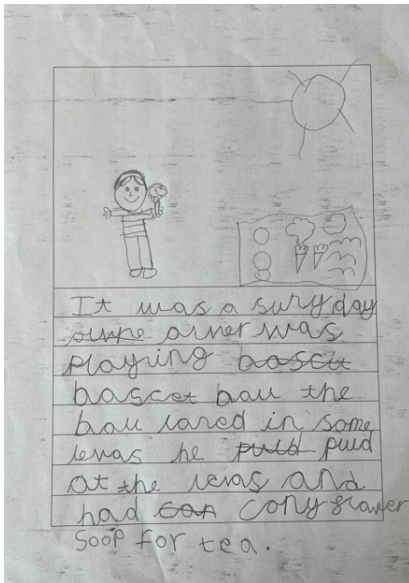 It was a suny day
oliver was
playing
bascet ball the
ball laned in some
levas he puld
at the levas and
had colyflawer
soop for tea.